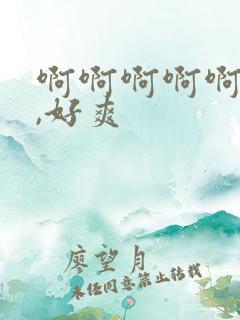 啊啊啊啊啊
,好爽
廖望月
未经同意禁止转载